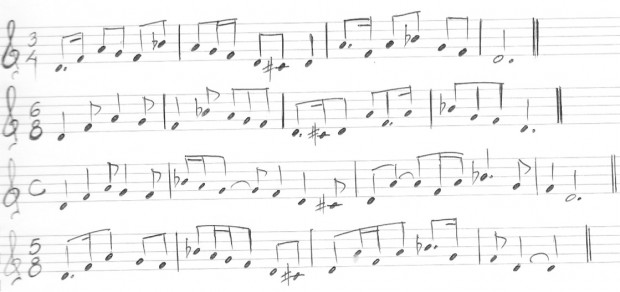 3
4
6
8
C
5
8